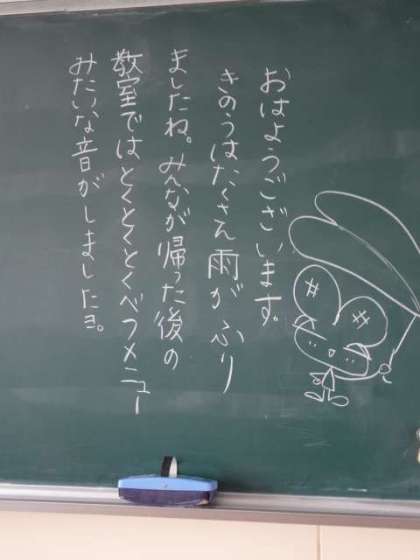 おはようございます。
きのうはたくさん雨がふり
ましたね。みんなが帰った後の
教室ではとくとくとくべつメニュー
みたいな音がしましたヨ。